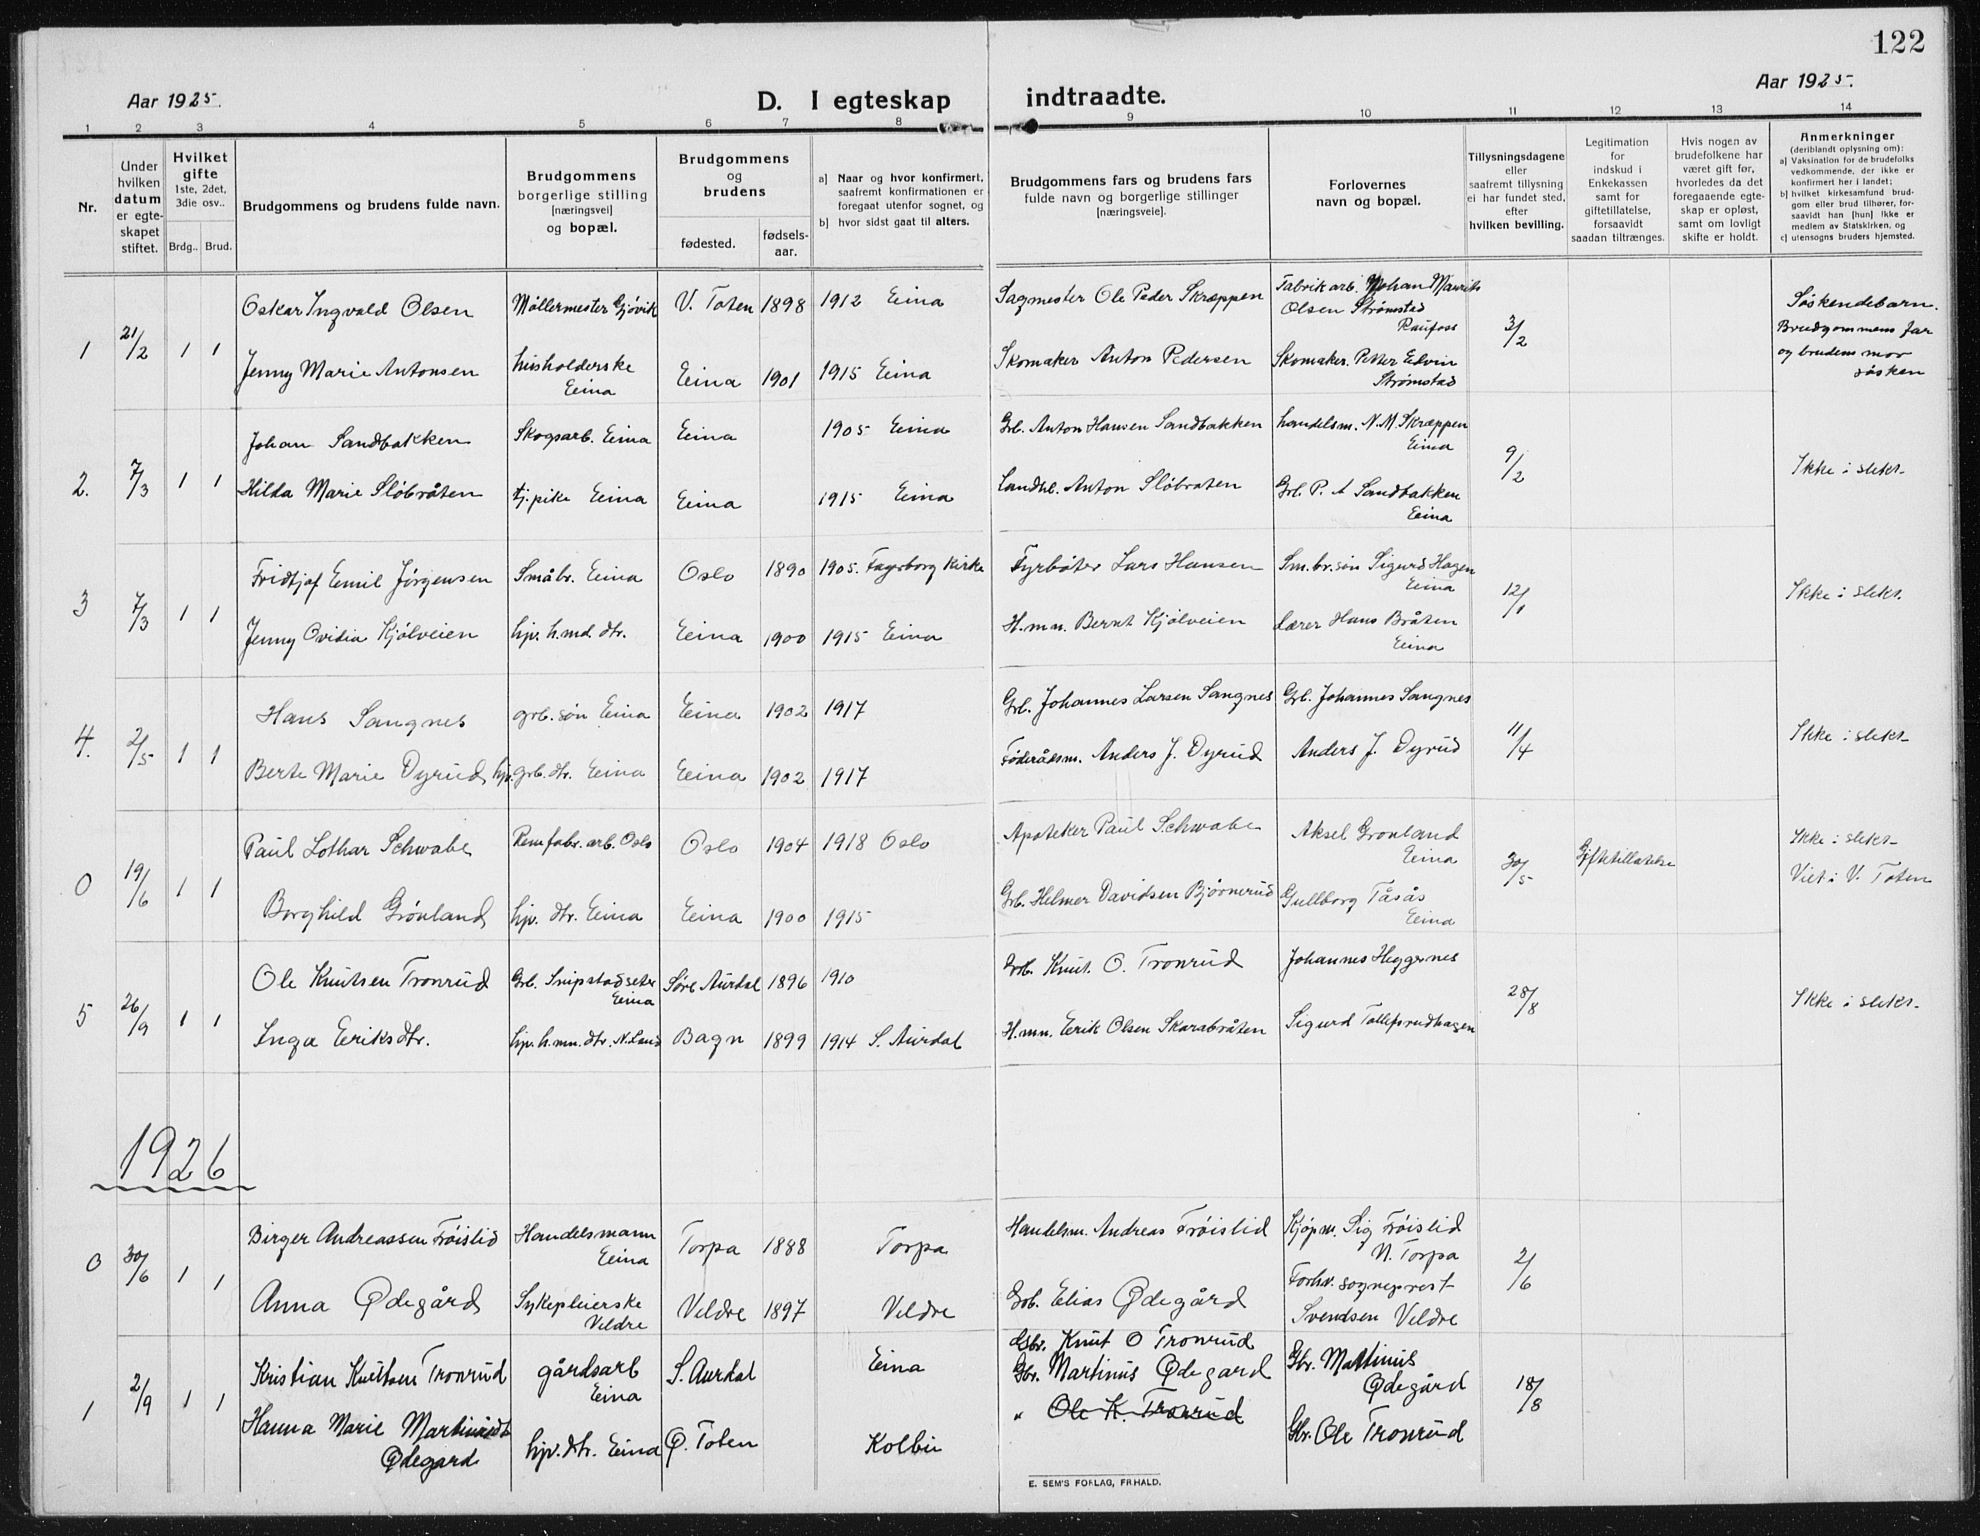 122
Aar 1925.
D. I egteskap indtraadte.
Aar 1925.
1 2 3 4 5 6 7 8 9 10 11 12 13 14
Nr.
Under
hvilken
datum
er egte-
skapet
stiftet.
Hvilket
gifte
1ste, 2det,
3die osv..
Brdg.. Brud.
Brudgommens og brudens fulde navn.
Brudgommens
borgerlige stilling
[næringsvei]
og bopæl.
Brudgommens
og
brudens
fødested.
fødsels-
aar.
a) Naar og hvor konfirmert,
saafremt konfirmationen er
foregaat utenfor sognet, og
b) hvor sidst gaat til alters.
Brudgommens fars og brudens fars
fulde navn og borgerlige stillinger
[næringsveie].
Forlovernes
navn og bopæl.
Tillysningsdagene
eller
saafremt tillysning
ei har fundet sted,
efter
hvilken bevilling.
Legitimation
for
indskud i
Enkekassen
samt for
giftetillatelse,
forsaavidt
saadan tiltrænges.
Hvis nogen av
brudefolkene har
været gift før,
hvorledes da det
foregaaende egte-
skap er opløst,
samt om lovligt
skifte er holdt.
Anmerkninger
(deriblandt oplysning om):
a) Vaksination for de brudefolks
vedkommende, der ikke er
konfirmert her i landet;
b) hvilket kirkesamfund brud-
gom eller brud tilhører, for-
saavidt han [hun] ikke er
medlem av Statskirken, og
c) utensogns bruders hjemsted.
1 21/2 1 1
Oskar Ingvald Olsen Møllermester Gjøvik V. Toten 1898 1912 Eina Sagmester Ole Peder Skræppen Fabrikarb. Johan Maurits
Olsen Strømstad
Raufoss
3/2
Søskendebarn.
Brudgommens far
og brudens mor
søsken
Jenny Marie Antonsen husholderske
Eina
Eina 1901 1915 Eina Skomaker Anton Pedersen Skomaker Petter Edvin
Strømstad
2. 7/3 1 1
Johan Sandbakken Skogsarb. Eina Eina 1905 Eina Grb. Anton Hansen Sandbakken handelsm. N. M. Skræppen
Eina
9/2
Ikke i slekt
Hilda Marie Sløbråten tj. pike Eina Eina 1915 Eina Landhl. Anton Sløbraten Grb. P. A Sandbakken
Eina
3 7/3 1 1
Fridtjof Emil Jørgensen Småbr. Eina Oslo 1890 1905. Fagerborg Kirke Fyrbøter Lars Hansen Sm.br.søn Sigurd Hagen
Eina
12/1
Ikke i slekt.
Jenny Ovidia Kjølveien hjv. h.md. dtr. Eina 1900 1915 Eina H.mn. Bernt Kjølveien Lærer Hans Bråten
Eina
4. 2/5 1 1
Hans Sangnes grb. søn Eina Eina 1902 1917 Grb. Johannes Larsen Sangnes Grb. Johannes Sangnes
11/4
Ikke i slekt
Berte Marie Dyrud hjv. grb. dtr. Eina Eina 1902 1917 Føderådsm. Anders J. Dyrud Anders J. Dyrud
0 19/6 1 1
Paul Lothar Schwabe Remfabr. arb. Oslo Oslo 1904 1918 Oslo Apoteker Paul Schwabe Aksel Grønland
Eina
30/5 Giftetillatelse
Ikke i slekt
Viet i V. Toten
Borghild Grønland hjv. dtr. Eina Eina 1900 1915 Grb. Helmer Davidsen Bjørnerud Gullborg Tåsås
Eina
5 26/9 1 1
Ole Knutsen Tronrud Grb. Snipstadseter
Eina
Søre Aurdal 1896 1910 Grb. Knut O. Tronrud Johannes Heggenes
28/8
Ikke i slekt.
Inga Eriksdtr. hjv. h.mn. dtr. N. Land Bagn 1899 1914 S. Aurdal H.mn. Erik Olsen Skarabråten Sigurd Tollefsrudhagen
1926
0 30/6 1 1
Birger Andreassen Frøislid Handelsmann
Eina
Torpa 1888 Torpa Handelsm. Andreas Frøislid Kjøpm. Sig Frøislid
N. Torpa
2/6
Anna Ødegård Sykepleierske
Veldre
Veldre 1897 Veldre Grb. Elias Ødegård Forhv. sogneprest
Svendsen Veldre
1 2/9 1 1
Gbr. Knut O Tronrud
Kristian Knutsen Tronrud gårdsarb
Eina
S. Aurdal Eina Gbr. Martinus Ødegard Gbr. Martinus
Ødegård
18/8
Hanna Marie Martinusdt
Ødegard
hjv. dtr. Eina Ø. Toten Kolbu " Ole K. Tronrud Gbr. Ole Tronrud
E. SEM'S FORLAG, FRHALD.